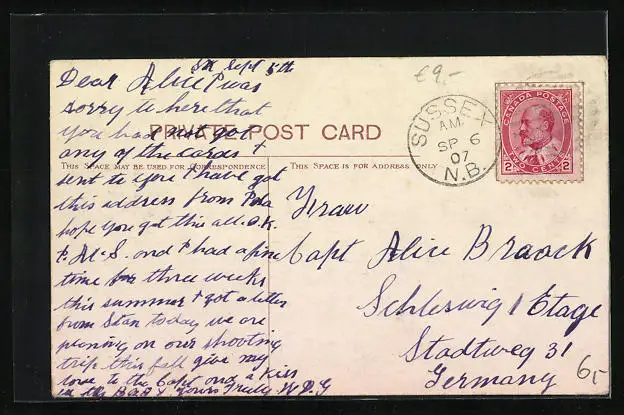 SX Sept 5th
€9,-
Dear Alice I was
sorry to here that
you had not got
PRIVATE POST CARD
any of the cards I
THIS SPACE MAY BE USED FOR CORRESPONDENCE
sent to you I have got
this address from Papa
hope you got this all O.K.
and I had a fine
time for three weeks
this summer I got a letter
from Stan today we are
planing on our shooting
trip this fall give my
love to the Capt and a Kiss
yours Truly W P G
THIS SPACE IS FOR ADDRESS ONLY
Frau
Capt Alice Braack
Schleswig 1 Etage
Stadtweg 31
Germany
6,-
SUSSEX
AM
SP 6
07
N.B.
CANADA POSTAGE
2 2
TWO CENTS